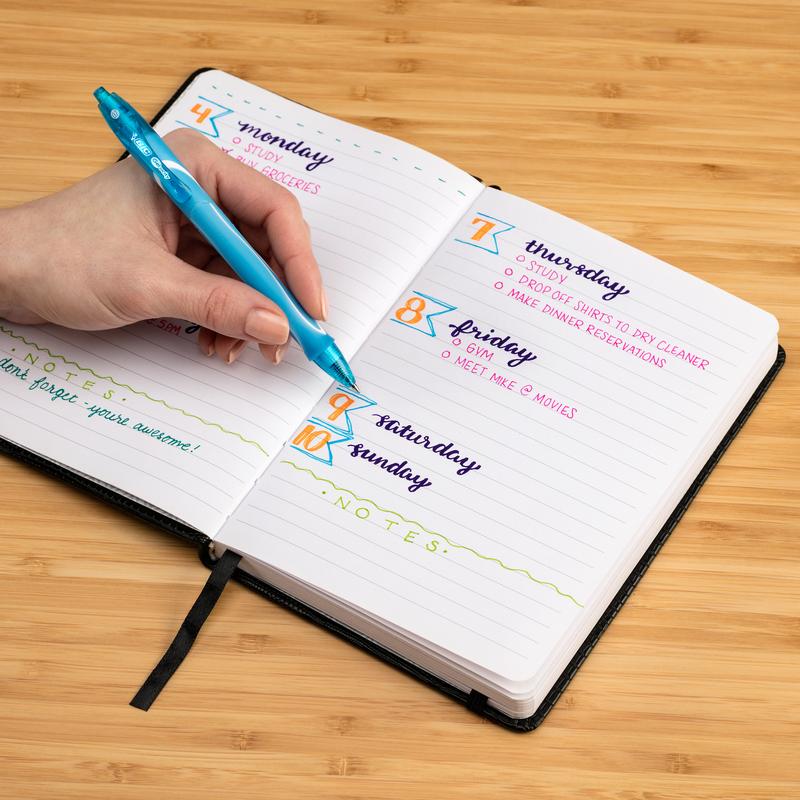 4 monday
STUDY
BUY GROCERIES
5PM
·NOTES·
don't forget - you're awesome!
BIC
7 thursday
STUDY
DROP OFF SHIRTS TO DRY CLEANER
MAKE DINNER RESERVATIONS
8 friday
GYM
MEET MIKE @ MOVIES
9 saturday
10 sunday
·NOTES·